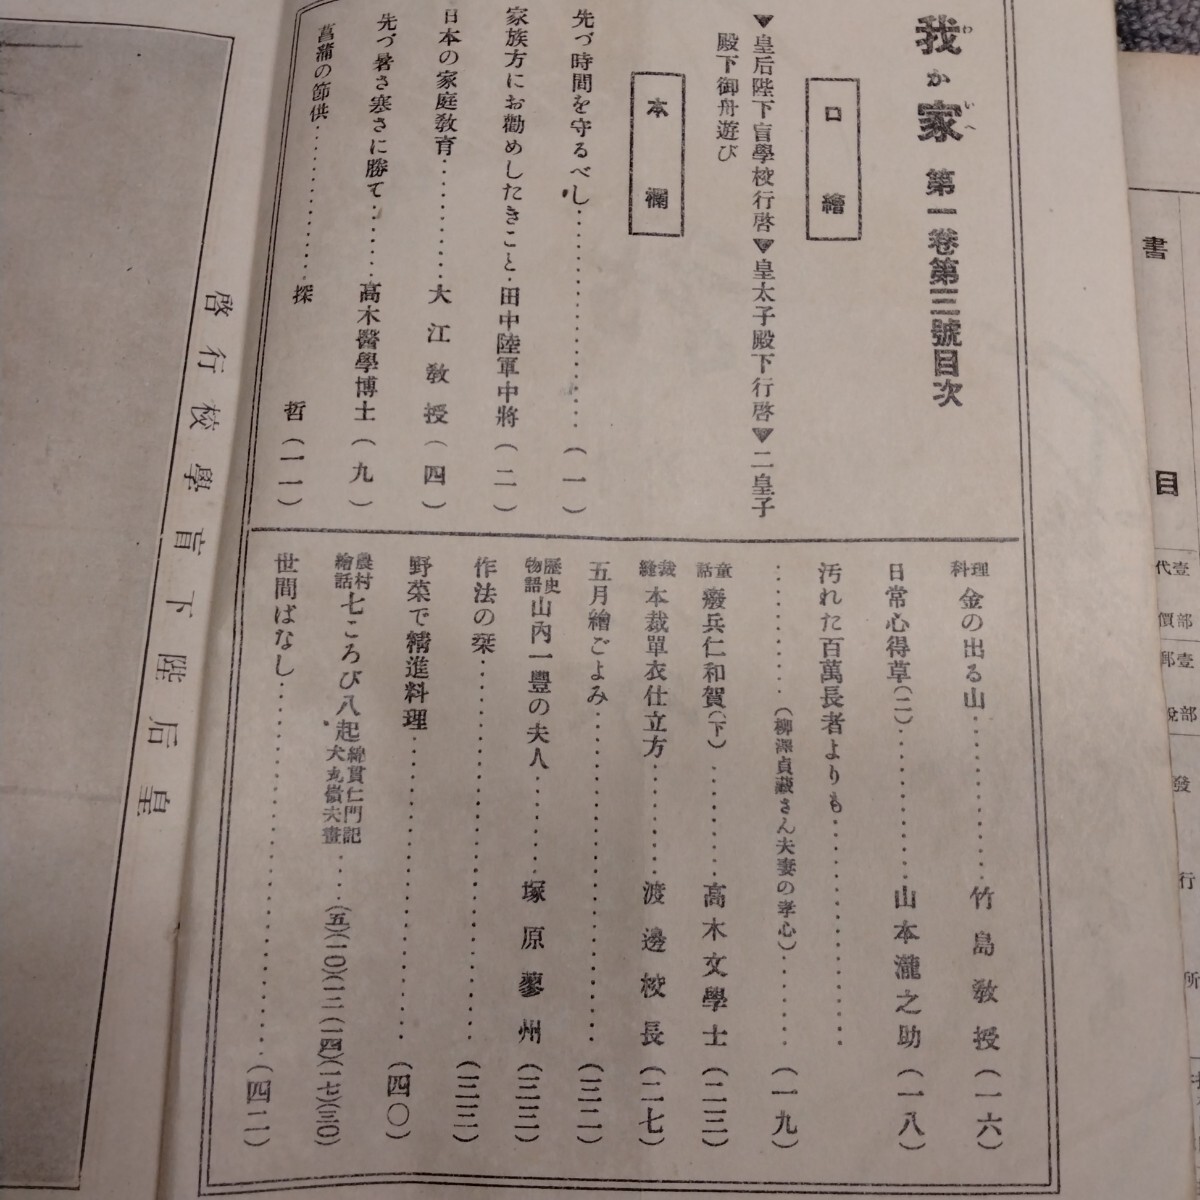 我が家 第一卷第三號目次
わ いへ
口繪
▼皇后陛下盲學校行啓▼皇太子殿下行啓▼二皇子
殿下御舟遊び
本欄
先づ時間を守るべし……………(一)
家族方にお勸めしたきこと…田中陸軍中將(二)
日本の家庭敎育………大江敎授(四)
先づ暑さ寒さに勝て………高木醫學博士(九)
菖蒲の節供…………探哲(一一)
料理 金の出る山…………竹島敎授(一六)
日常心得草(二)…………山本瀧之助(一八)
汚れた百萬長者よりも……………
…………(柳澤貞藏さん夫妻の孝心)………(一九)
童話 癈兵仁和賀(下)………高木文學士(二三)
裁縫 本裁單衣仕立方………渡邊校長(二七)
五月繪ごよみ……………(三二)
歷史物語 山內一豐の夫人………塚原蓼州(三三)
作法の栞……………(三三)
野菜で精進料理……………(四〇)
農村繪話 七ころび八起 綿貫仁門記 犬丸橫夫畫……(五)(一〇)(一二)(一四)(一七)(三〇)
世間ばなし……………(四二)
皇后陛下盲學校行啓
書目
壹部代價
壹部郵稅
發行所